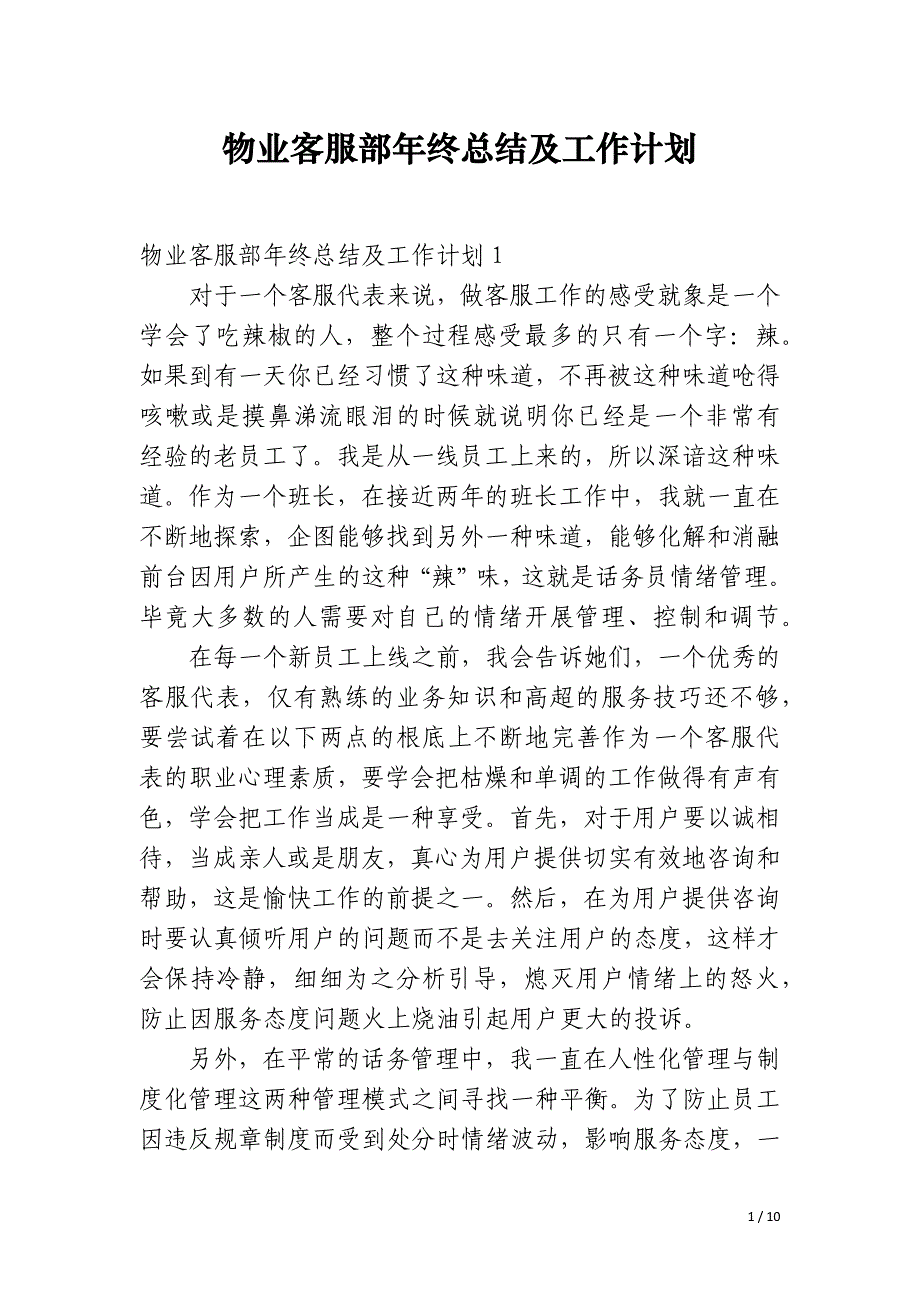 物业客服部年终总结及工作计划
物业客服部年终总结及工作计划1
对于一个客服代表来说，做客服工作的感受就象是一个
学会了吃辣椒的人，整个过程感受最多的只有一个字：辣。
如果到有一天你已经习惯了这种味道，不再被这种味道呛得
咳嗽或是摸鼻涕流眼泪的时候就说明你已经是一个非常有
经验的老员工了。我是从一线员工上来的，所以深谙这种味
道。作为一个班长，在接近两年的班长工作中，我就一直在
不断地探索，企图能够找到另外一种味道，能够化解和消融
前台因用户所产生的这种“辣”味，这就是话务员情绪管理。
毕竟大多数的人需要对自己的情绪开展管理、控制和调节。
在每一个新员工上线之前，我会告诉她们，一个优秀的
客服代表，仅有熟练的业务知识和高超的服务技巧还不够，
要尝试着在以下两点的根底上不断地完善作为一个客服代
表的职业心理素质，要学会把枯燥和单调的工作做得有声有
色，学会把工作当成是一种享受。首先，对于用户要以诚相
待，当成亲人或是朋友，真心为用户提供切实有效地咨询和
帮助，这是愉快工作的前提之一。然后，在为用户提供咨询
时要认真倾听用户的问题而不是去关注用户的态度，这样才
会保持冷静，细细为之分析引导，熄灭用户情绪上的怒火，
防止因服务态度问题火上烧油引起用户更大的投诉。
另外，在平常的话务管理中，我一直在人性化管理与制
度化管理这两种管理模式之间寻找一种平衡。为了防止员工
因违反规章制度而受到处分时情绪波动，影响服务态度，一
1 / 10